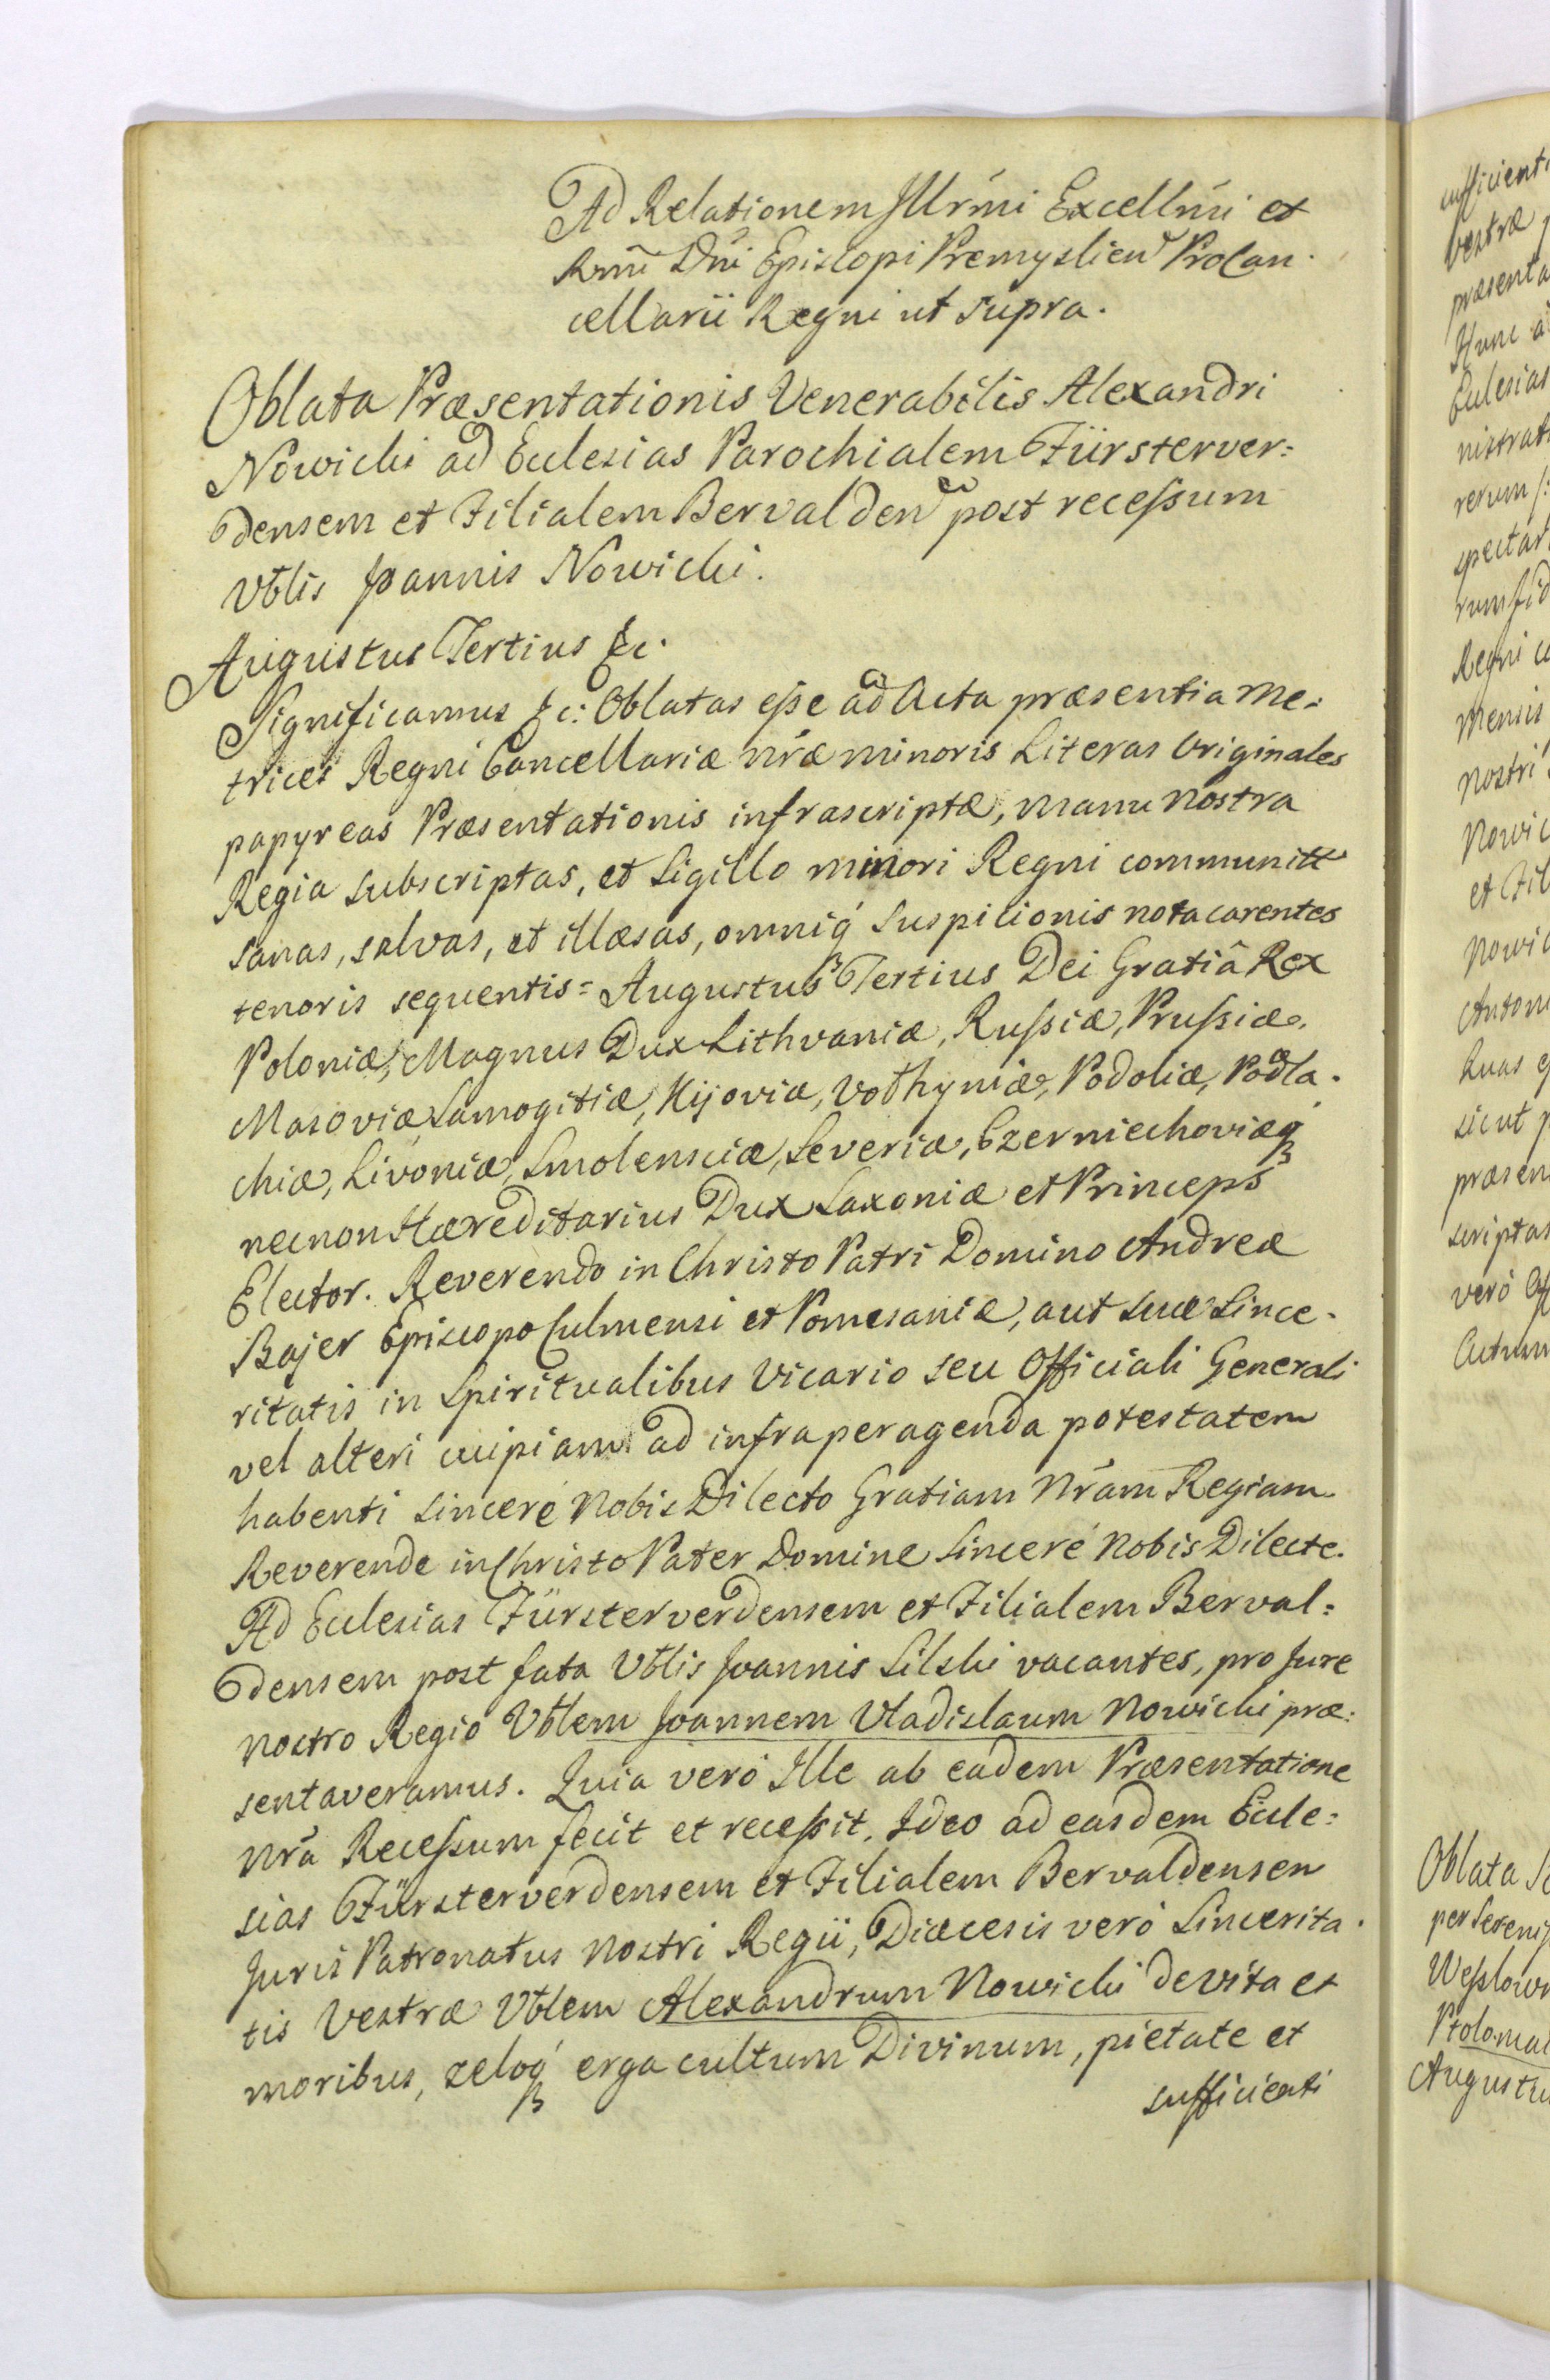 Ad Relationem Illrmi Excellmi et
Rmi Dni Episcopi Premyslien Procan-
cellarii Regni ut supra.
Oblata Præsentationis Venerabilis Alexandri
Nowicki ad Ecclesias Parochialem Fürsterver=
densem et Filialem Bervalden post recessum
Vblis Joannis Nowicki.
Augustus Tertius &c.
Significamus &c: Oblatas esse ad Acta præsentia Me-
trices Regni Cancellariæ nræ minoris Literas Originales
papyreas Præsentationis infrascriptæ, manu nostra
Regia subscriptas, et Sigillo minori Regni communitt
sanas, salvas, et illæsas, omniq́ suspicionis nota carentes
tenoris sequentis= Augustus Tertius Dei Gratiâ Rex
Poloniæ, Magnus Dux Lithvaniæ, Russiæ, Prussiæ,
Masoviæ, Samogitiæ, Kijoviæ, Volhyniæ, Podoliæ, Podla-
chiæ, Livoniæ, Smolensciæ, Severiæ, Czerniechoviæq́
necnon Hæreditarius Dux Saxoniæ et Princeps
Elector. Reverendo in Christo Patri Domino Andreæ
Bajer Episcopo Culmensi et Pomesaniæ, aut suæ Since-
ritatis in Spiritualibus Vicario seu Officiali Generali
vel alteri cuipiam ad infra peragenda potestatem
habenti sincere Nobis Dilecto Gratiam Nram Regiam
Reverende in Christo Pater Domine Sincere Nobis Dilecte.
Ad Ecclesias Fürsterverdensem et Filialem Berval=
densem post fata Vblis Joannis Silski vacantes, pro Jure
nostro Regio Vblem Joannem Vladislaum Nowicki præ-
sentaveramus. Quia veró Ille ab eadem Præsentatione
Nrâ Recessum fecit et recessit, Ideo ad easdem Eccle=
sias Fürsterverdensem et Filialem Bervaldensen
Juris Patronatus Nostri Regii, Diæcesis veró Sincerita-
tis Vestræ Vblem Alexandrum Nowicki de vita et
moribus, zeloq́ erga cultum Divinum, pietate et
sufficienti
sufficienti
vestræ
præsenta
Hunc a
Ecclesias
nistrat
rerum
spectar
rum fid
Regni c
mensis
Nostri
Nowic
et Fil
Nowic
Anton
Quas
sicut
præsen
scriptas
veró
Actum
Oblata
per Sereniss
Wesslow
Ptolomai
Augustu